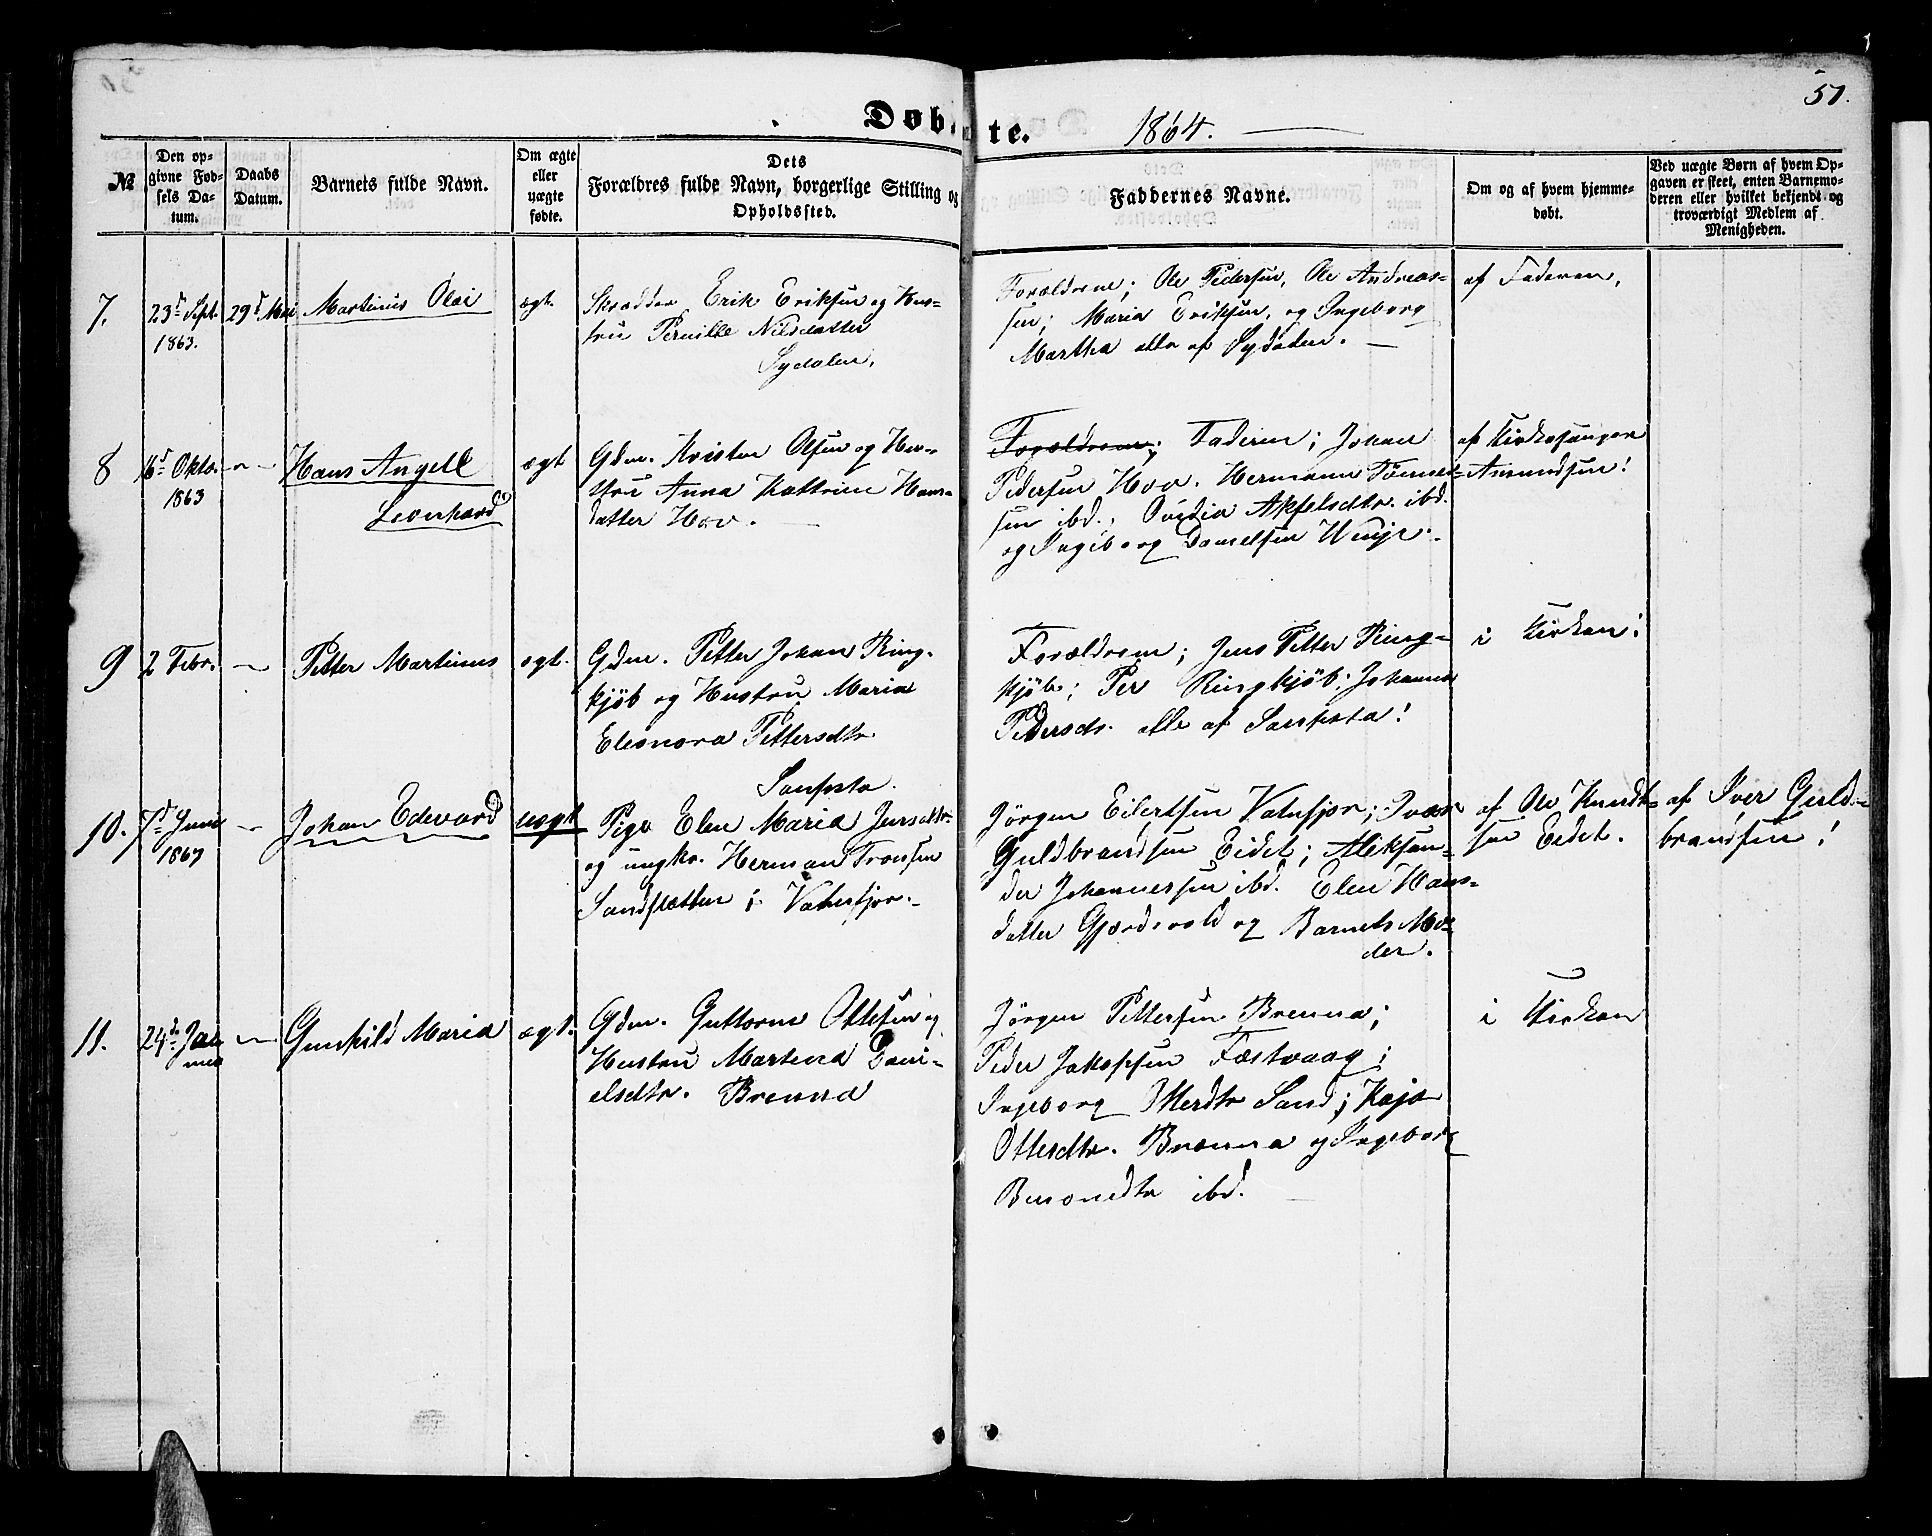 51.
Døbte. 1864.
№
Den op-
givne Fød-
sels Da-
tum.
Daabs
Datum.
Barnets fulde Navn.
Om ægte
eller
uægte
fødte.
Dets
Forældres fulde Navn, borgerlige Stilling og
Opholdssted.
Faddernes Navne.
Om og af hvem hjemme-
døbt.
Ved uægte Børn af hvem Op-
gaven er skeet, enten Barnemo-
deren eller hvilket bekjendt og
troværdigt Medlem af
Menigheden.
7.
23d Sept.
1863.
29d Mai
Martinus Olai
ægt.
Skrædder Erik Eriksen og Hus-
tru Pernille Nilsdatter
Sydalen.
Forældrene; Ole Pedersen, Ole Andreas-
sen; Maria Eriksen, og Ingeborg
Martha alle af Sydalen.
af Faderen.
8
16d Oktbr.
1863
Hans Angell
Leonhard
ægt
Gdm. Kristen Olsen og Hu-
stru Anna Kattrine Hans-
datter Hov.
Forældrene; Faderen; Johan
Pedersen Hov. Hermann Tønnes-
sen ibd., Ovidia Akselsdtr. ibd.
og Ingeborg Danielsen Vinje.
af Kirkesanger
Amundsen!
9
2 Febr.
Petter Martinus
ægt.
Gdm. Petter Johan Ring-
kjøb og Hustru Maria
Eleonora Pettersdtr.
Sanpsta.
Forældrene; Jens Petter Ring-
kjøb; Per Ringkjøb; Johanna
Pedersdr. alle af Sanpsta!
i Kirken!
10.
7d Juni
1867
Johan Edevard
uægt
Pige Elen Maria Jensdtr.
og ungkr. Herman Tronsen
Sandsletten i Vatnfjor.
Jørgen Eilertsen Vatnfjor; Ivar
Guldbrandsen Eidet; Aleksan-
der Johannessen ibd. Elen Hans-
datter Gjærdevold og Barnets Mo-
der.
af Ole Knudt-
sen Eidet.
af Iver Guld-
brandsen!
11.
24de Jan
Gunhild Maria
ægt.
Gdm. Guttorm Ottesen og
Hustru Martina Dani-
elsdtr. Brenna
Jørgen Pettersen Brenna;
Peder Jakopsen Fæstvaag;
Ingeborg Ottesdtr Sand; Kaja
Ottesdtr. Brænna og Ingebor
ibd.
i Kirken